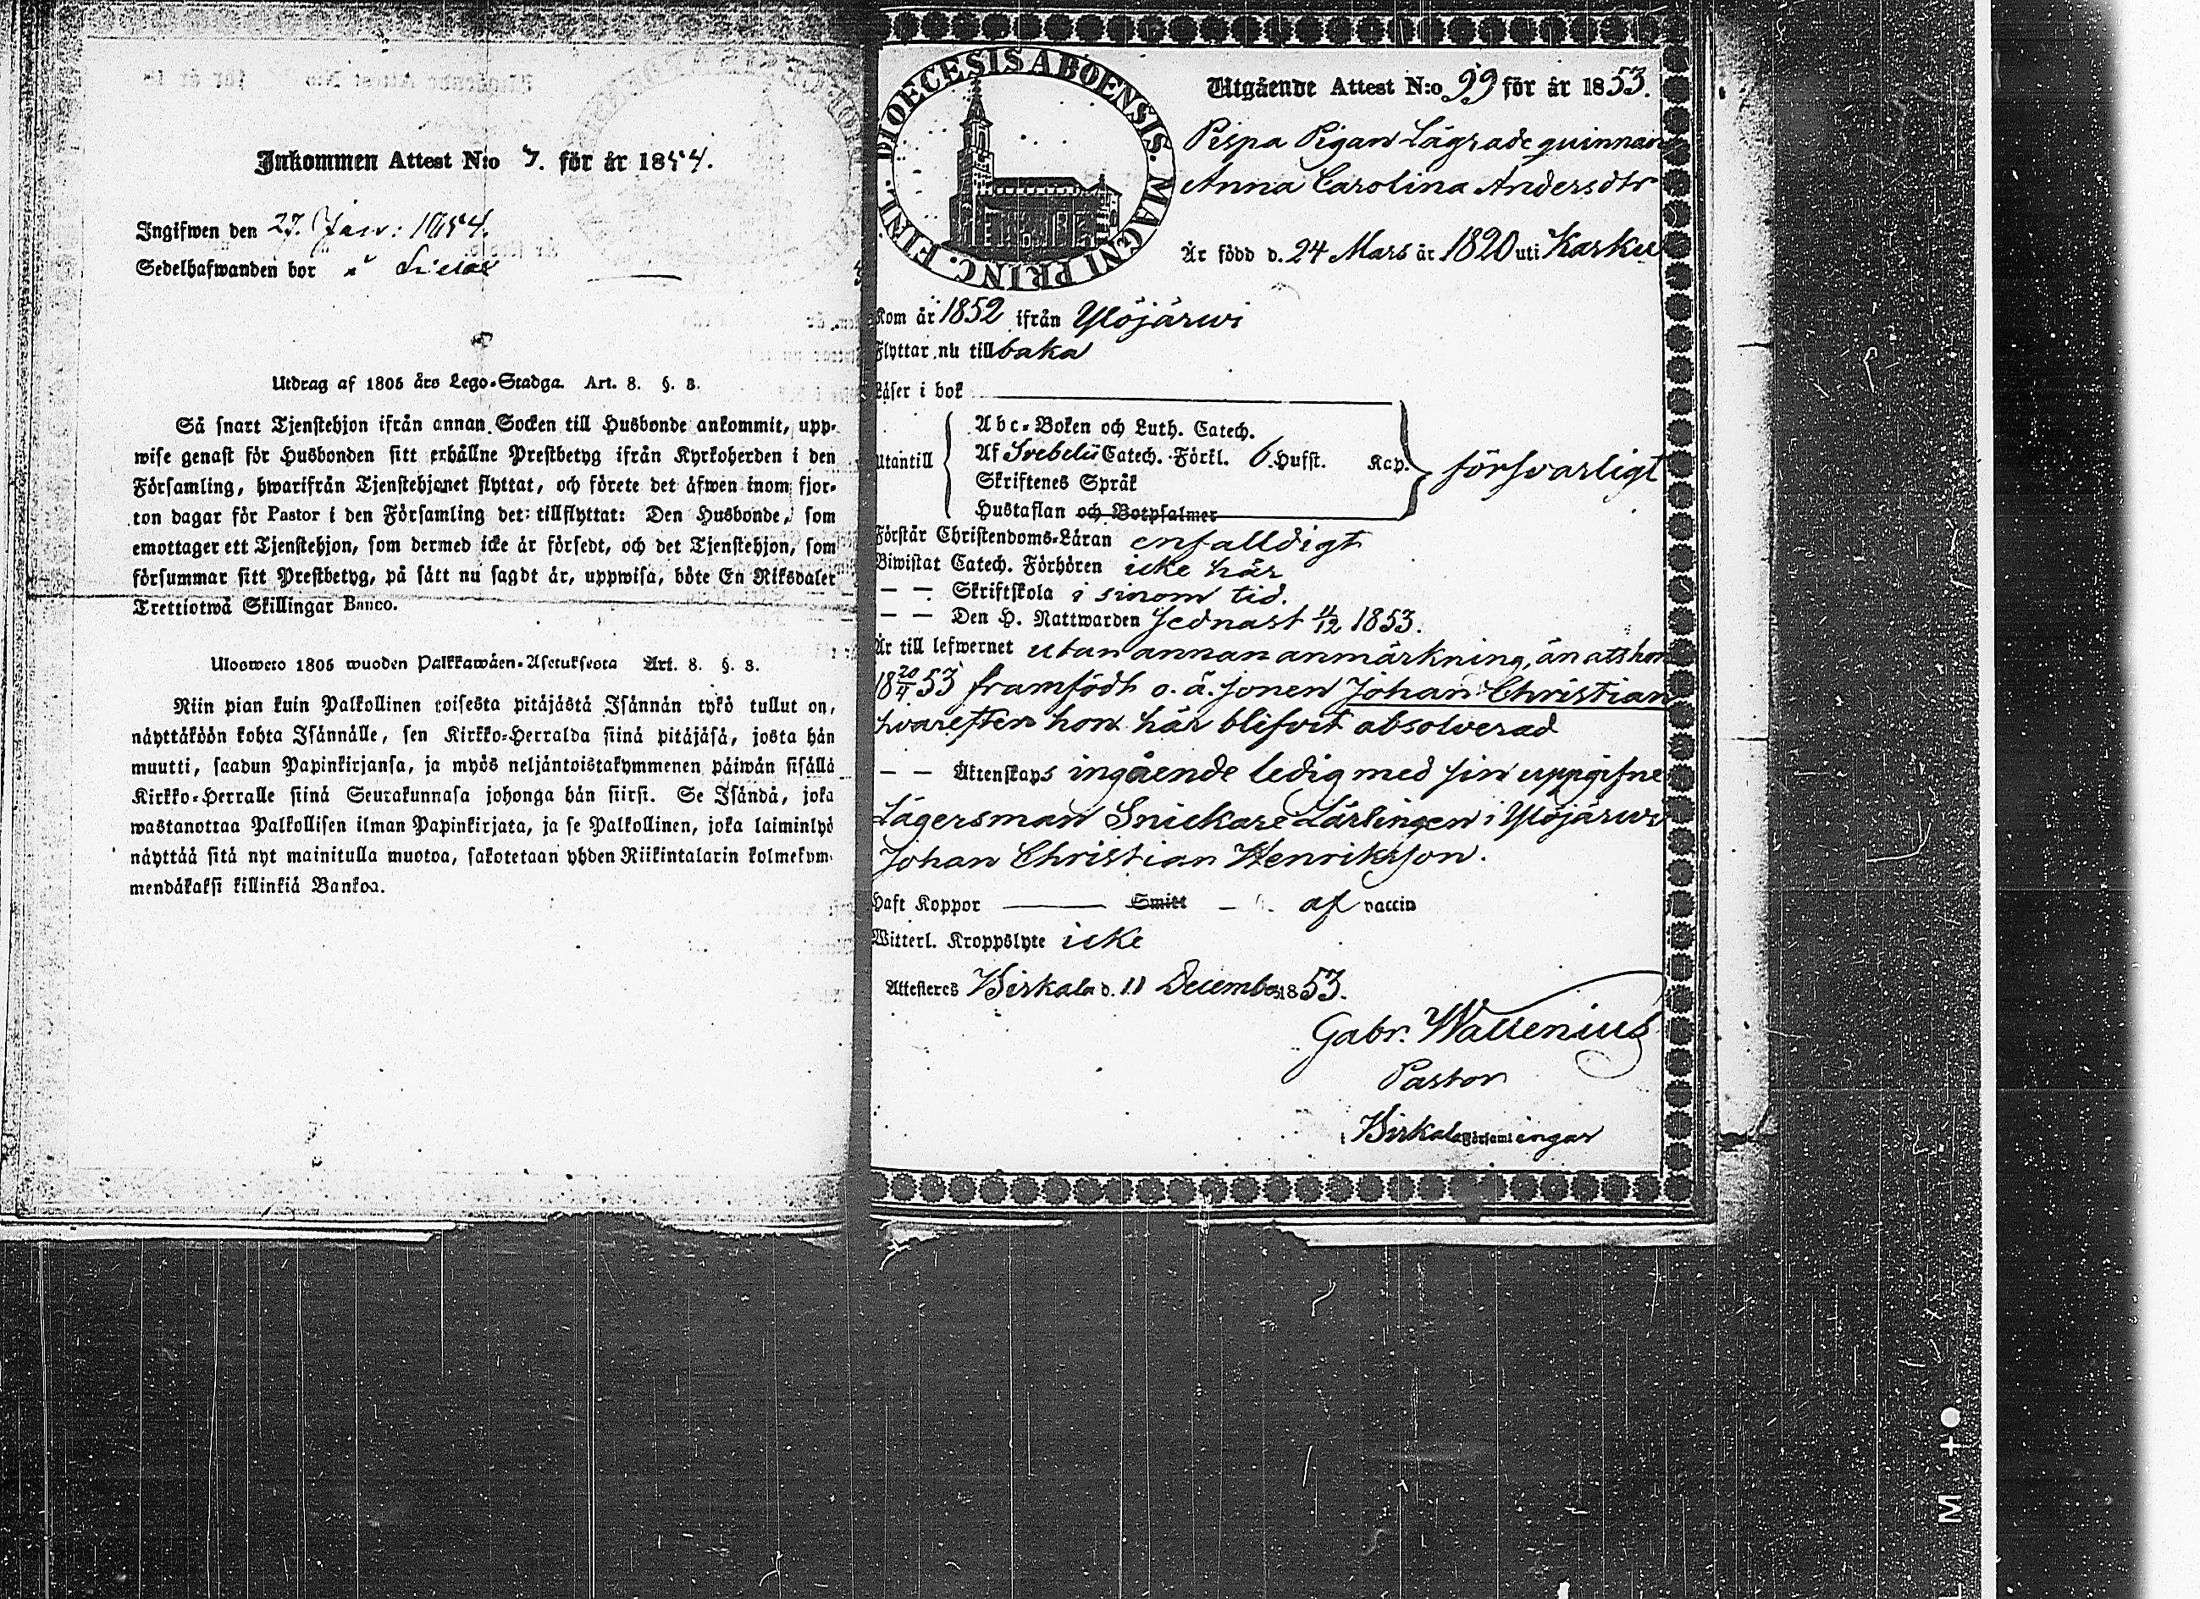 Inkommen Attest N:o 7. för år 1854.
Ingifwen den 27. Janr: 1854.
Sedelhafwanden bor
Utdrag af 1805 års Lego-Stadga. Art. 8. §. 3.
Så snart Tjenstehjon ifrån annan Socken till Husbonde ankommit, upp-
wise genast för Husbonden sitt erhållne Prestbetyg ifrån Kyrkoherden i den
Församling, hwarifrån Tjenstehjonet flyttat, och förete det äfwen inom fjor-
ton dagar för Pastor i den Församling det tillflyttat: Den Husbonde, som
emottager ett Tjenstehjon, som dermed icke är försedt, och det Tjenstehjon, som
försummar sitt Prestbetyg, på sätt nu sagdt är, uppwisa, böte En Riksdaler
Trettiotwå Skillingar Banco.
Ulosweto 1805 wuoden Palkkawäen-Asetuksesta Art. 8. §. 3.
Niin pian kuin Palkollinen toisesta pitäjästä Isännän tykö tullut on,
näyttäköön kohta Isännälle, sen Kirkko-Herralda siinä pitäjäsä, josta hän
muutti, saadun Papinkirjansa, ja myös neljäntoistakymmenen päiwän sisällä
Kirkko-Herralle siinä Seurakunnasa johonga hän siirsi. Se Isändä, joka
wastanottaa Palkollisen ilman Papinkirjata, ja se Palkollinen, joka laiminlyö
näyttää sitä nyt mainitulla muotoa, sakotetaan yhden Riikintalarin kolmekym-
mendäkaksi killinkiä Bankoa.
DIOECESIS ABOENSIS. MAGNI PRINC. FINL.
Utgående Attest N:o 99 för år 1853.
Pispa Pigan Lägrade quinnan
Anna Carolina Andersdtr
Är född d. 24 Mars år 1820 uti Karku
Kom år 1852 ifrån Ylöjärwi
Flyttar nu tillbaka
Läser i bok
Utantill
Abc-Boken och Luth. Catech.
Af Svebelii Catech. Förkl. 6 Hufst. Kap. försvarligt
Skriftenes Språk
Hustaflan och Botpsalmer
Förstår Christendoms-Läran enfalldigt
Biwistat Catech. Förhören icke här
— — Skriftskola i sinom tid.
— — Den H. Nattwarden sednast 11/12 1853.
Är till lefwernet utan annan anmärkning, än att hon
18 20/4 53 framfödt o. ä. sonen Johan Christian
hvareften hon här blifvit absolverad
— — Äktenskaps ingående ledig med sin uppgifne
Lägersman Snickare Lärlingen i Ylöjärwi
Johan Christian Henriksson.
Haft Koppor — Smitt — af vaccin
Witterl. Kroppslyte icke
Attesteres Birkala d. 11 December 1853.
Gabr. Wallenius
Pastor
i Birkala Församlingar
M +